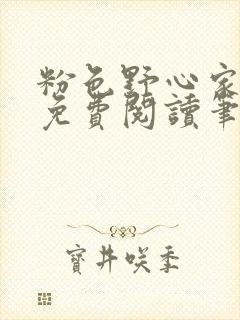 粉色野心家
免費閱讀筆
寶井咲季